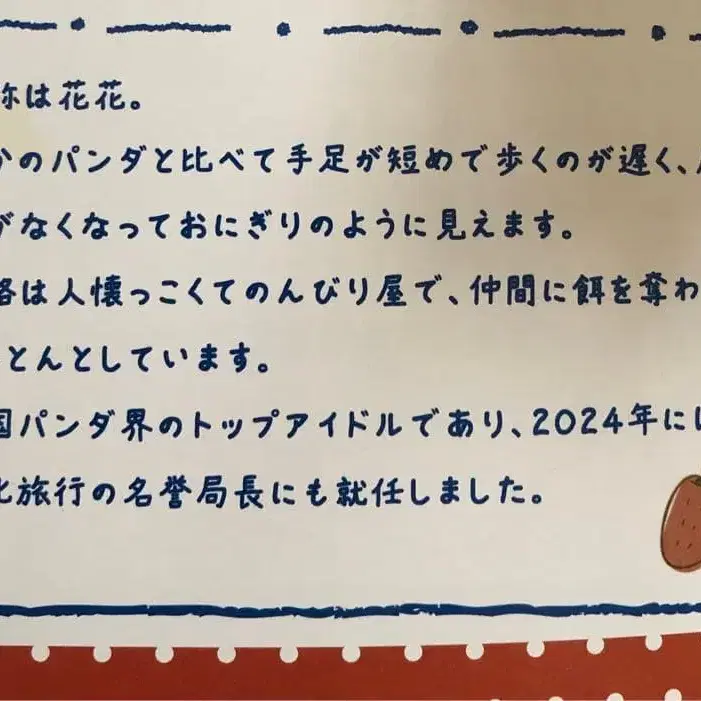 称は花花。
かのパンダと比べて手足が短めで歩くのが遅く、
がなくなっておにぎりのように見えます。
格は人懐っこくてのんびり屋で、仲間に餌を奪わ
とんとしています。
国パンダ界のトップアイドルであり、2024年に
旅行の名誉局長にも就任しました。